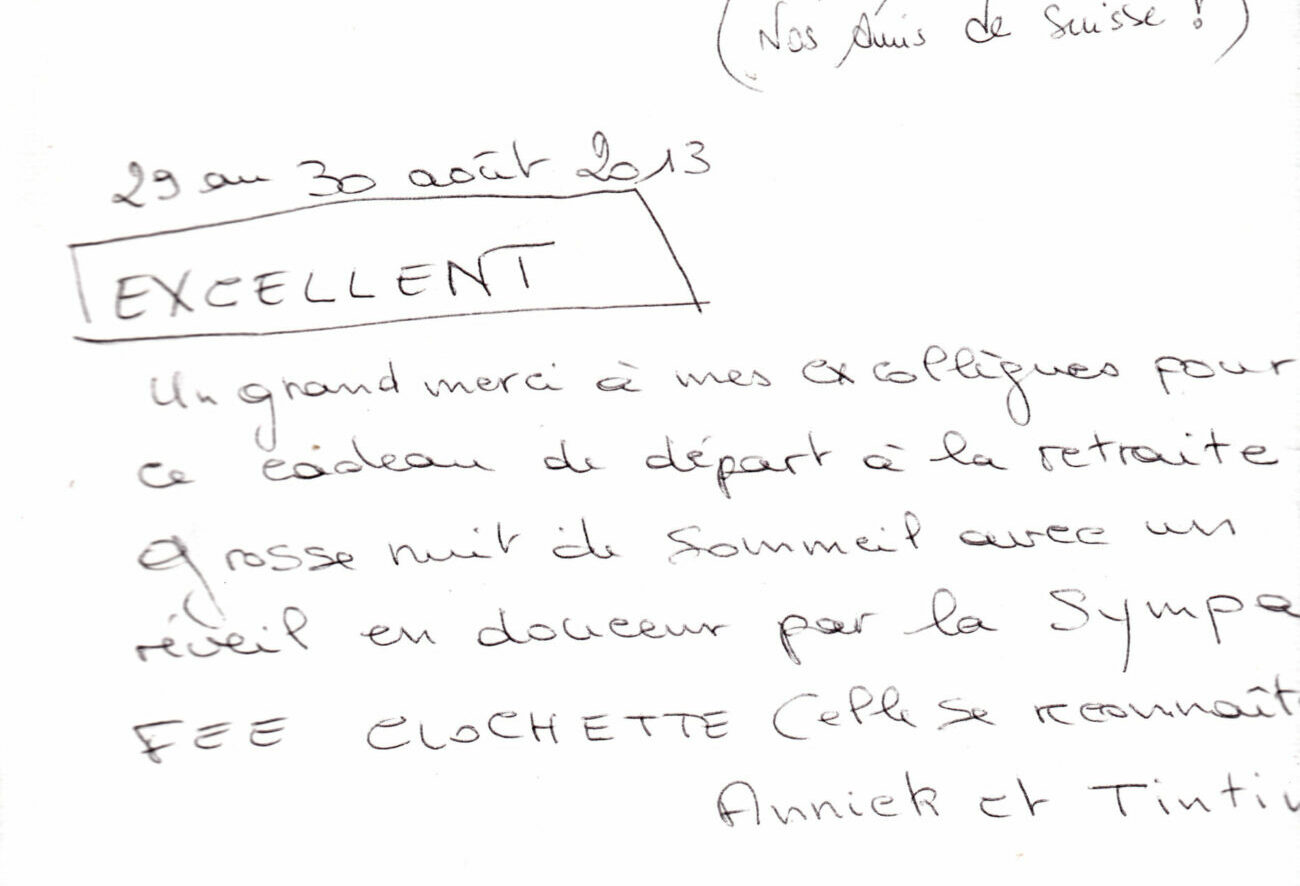 (Nos Amis de Suisse !)
29 au 30 août 2013
EXCELLENT
Un grand merci à mes ex collègues pour
ce cadeau de départ à la retraite
Grosse nuit de sommeil avec un
réveil en douceur par la Sympa
FEE CLOCHETTE (elle se reconnaît
Annick et Tintin